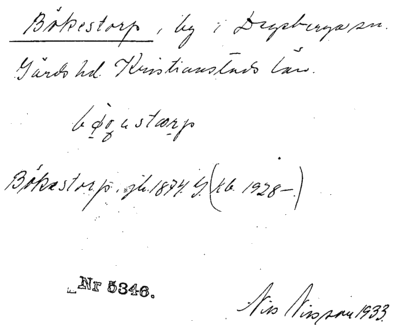 Bökestorp, by i Degeberga sn.
Gärds hd. Kristianstads län.
Bökestorp, jb. 1874. G. (kb. 1928–.)
Nr 5346.
Nils Nilsson 1933.